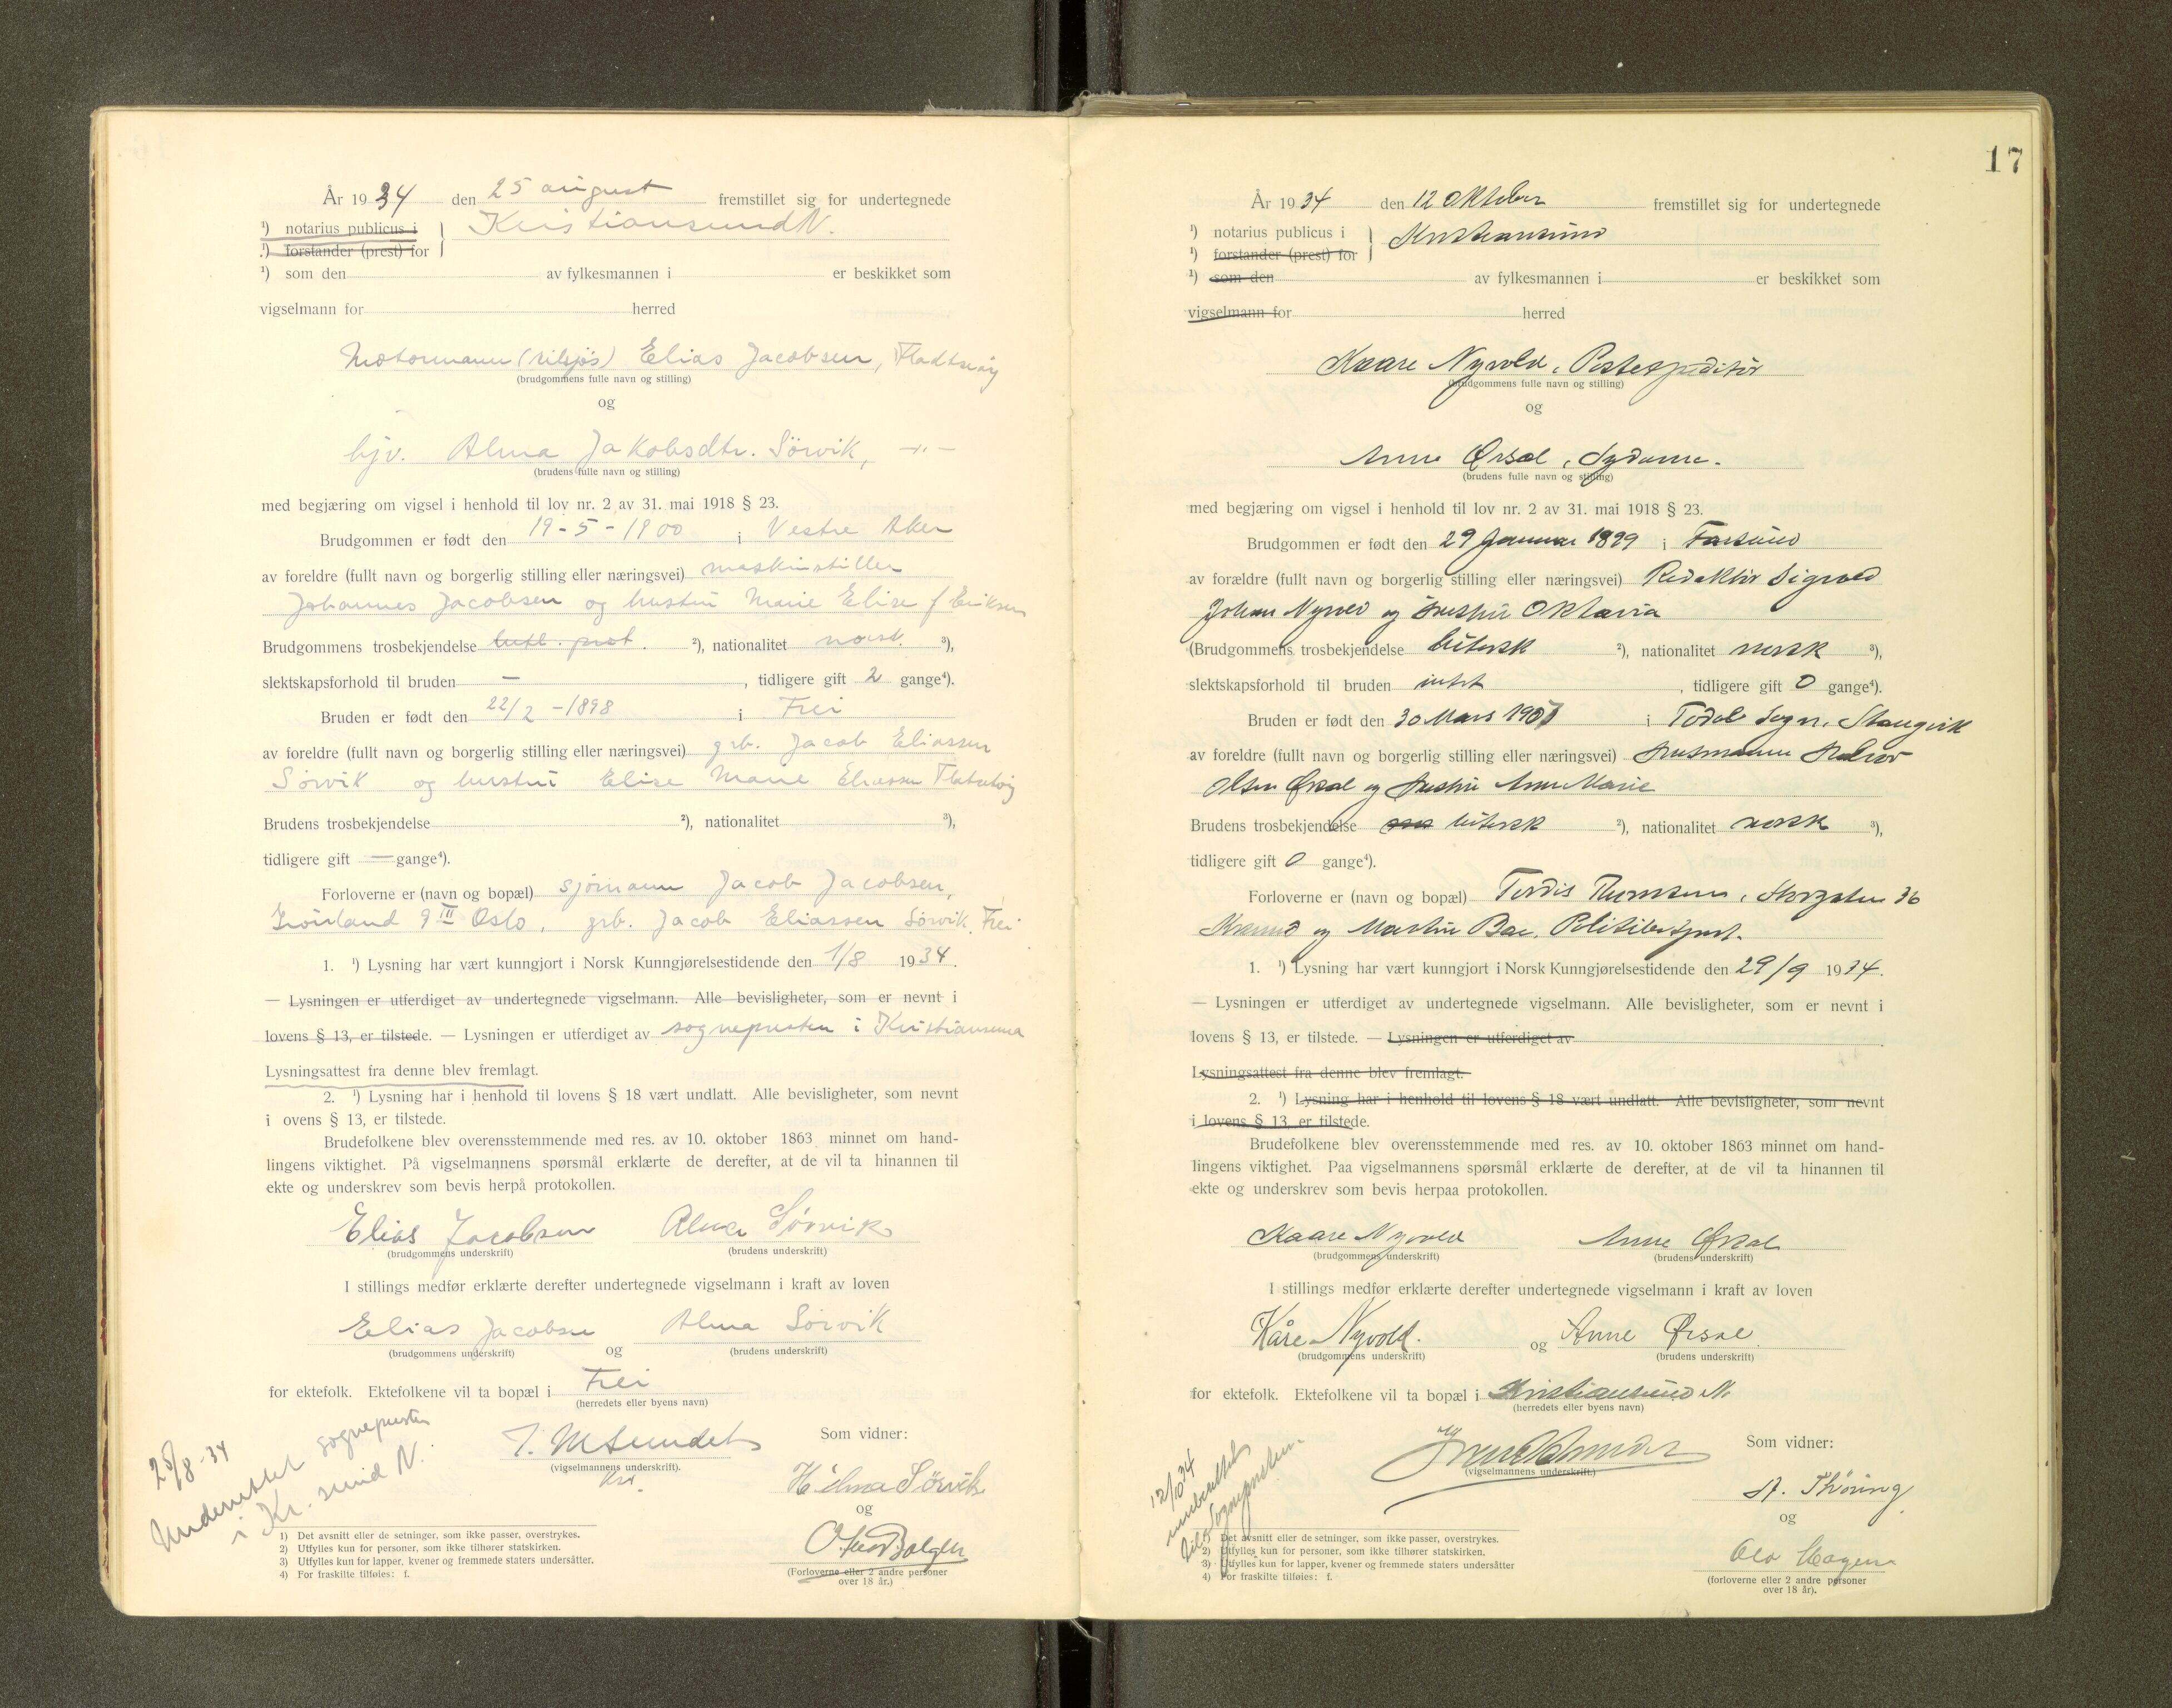 År 1934 den 25 august fremstillet sig for undertegnede
¹) notarius publicus i
¹) forstander (prest) for
Kristiansund N.
¹) som den av fylkesmannen i er beskikket som
vigselmann for herred
Motormann (tilsjøs) Elias Jacobsen,
(brudgommens fulle navn og stilling)
og
hjv. Alma Jakobsdtr. Sørvik, -"-
(brudens fulle navn og stilling)
med begjæring om vigsel i henhold til lov nr. 2 av 31. mai 1918 § 23.
Brudgommen er født den 19-5-1900 i Vestre Aker
av foreldre (fullt navn og borgerlig stilling eller næringsvei) maskinstiller
Johannes Jacobsen og hustru Marie Elise f Eriksen
Brudgommens trosbekjendelse luth. prot. ²), nationalitet norsk. ³),
slektskapsforhold til bruden — , tidligere gift 2 gange⁴).
Bruden er født den 22/2 - 1898 i Frei
av foreldre (fullt navn og borgerlig stilling eller næringsvei) grb. Jacob Eliassen
Sørvik og hustru Elise Marie Eliassen
Brudens trosbekjendelse ²), nationalitet ³),
tidligere gift — gange⁴).
Forloverne er (navn og bopæl) sjømann Jacob Jacobsen,
Grønland 9 III Oslo, grb. Jacob Eliassen Sørvik, Frei
1. ¹) Lysning har vært kunngjort i Norsk Kunngjørelsestidende den 1/8 1934.
— Lysningen er utferdiget av undertegnede vigselmann. Alle bevisligheter, som er nevnt i
lovens § 13, er tilstede. — Lysningen er utferdiget av sogneprsten i Kristiansund
Lysningsattest fra denne blev fremlagt.
2. ¹) Lysning har i henhold til lovens § 18 vært undlatt. Alle bevisligheter, som nevnt
i ovens § 13, er tilstede.
Brudefolkene blev overensstemmende med res. av 10. oktober 1863 minnet om hand-
lingens viktighet. På vigselmannens spørsmål erklærte de derefter, at de vil ta hinannen til
ekte og underskrev som bevis herpå protokollen.
Elias Jacobsen Alma Sørvik
(brudgommens underskrift) (brudens underskrift)
I stillings medfør erklærte derefter undertegnede vigselmann i kraft av loven
Elias Jacobsen og Alma Sørvik
(brudgommens underskrift) (brudens underskrift)
for ektefolk. Ektefolkene vil ta bopæl i Frei
(herredets eller byens navn)
Som vidner:
(vigselmannens underskrift).
Sørvik
og
(Forloverne eller 2 andre personer
over 18 år.)
25/8-34
Underrettet sogneprsten
i Kr.sund N.
1) Det avsnitt eller de setninger, som ikke passer, overstrykes.
2) Utfylles kun for personer, som ikke tilhører statskirken.
3) Utfylles kun for lapper, kvener og fremmede staters undersåtter.
4) For fraskilte tilføies: f.
17
År 1934 den 12 Oktober fremstillet sig for undertegnede
¹) notarius publicus i
¹) forstander (prest) for
Kristiansund
¹) som den av fylkesmannen i er beskikket som
vigselmann for herred
Kaare Nyvold, Postekspeditør
(brudgommens fulle navn og stilling)
og
Anne Ørsal, Sydame.
(brudens fulle navn og stilling)
med begjæring om vigsel i henhold til lov nr. 2 av 31. mai 1918 § 23.
Brudgommen er født den 29 Januar 1899 i Farsund
av forældre (fullt navn og borgerlig stilling eller næringsvei) Redaktør Sigvald
Johan Nyvold og hustru Oktavia
(Brudgommens trosbekjendelse luthersk ²), nationalitet norsk ³),
slektskapsforhold til bruden intet , tidligere gift 0 gange⁴).
Bruden er født den 30 Mars 1907 i Todal Sogn, Stangvik
av foreldre (fullt navn og borgerlig stilling eller næringsvei) Husmann Halvor
Olsen Ørsal og hustru Anne Marie
Brudens trosbekjendelse luthersk ²), nationalitet norsk ³),
tidligere gift 0 gange⁴).
Forloverne er (navn og bopæl) Tordis Thomsen, Storgaten 36
Krsund og Martin Bae, Politibetjent.
1. ¹) Lysning har vært kunngjort i Norsk Kunngjørelsestidende den 29/9 1934.
— Lysningen er utferdiget av undertegnede vigselmann. Alle bevisligheter, som er nevnt i
lovens § 13, er tilstede. — Lysningen er utferdiget av
Lysningsattest fra denne blev fremlagt.
2. ¹) Lysning har i henhold til lovens § 18 vært undlatt. Alle bevisligheter, som nevnt
i lovens § 13, er tilstede.
Brudefolkene blev overensstemmende med res. av 10. oktober 1863 minnet om hand-
lingens viktighet. Paa vigselmannens spørsmål erklærte de derefter, at de vil ta hinannen til
ekte og underskrev som bevis herpaa protokollen.
Kaare Nyvold Anne Ørsal
(brudgommens underskrift) (brudens underskrift)
I stillings medfør erklærte derefter undertegnede vigselmann i kraft av loven
Kåre Nyvold. og Anne Ørsal
(brudgommens underskrift) (brudens underskrift)
for ektefolk. Ektefolkene vil ta bopæl i Kristiansund N.
(herredets eller byens navn)
Som vidner:
(vigselmannens underskrift.)
A. Thöring
og
(forloverne eller 2 andre personer
over 18 år).
12/10 34
innberettet
til Sognepresten.
1) Det avsnitt eller de setninger, som ikke passer, overstrykes.
2) Utfylles kun for personer, som ikke tilhører statskirken.
3) Utfylles kun for lapper, kvener og fremmede staters undersåtter
4) For fraskilte tilføies: f.